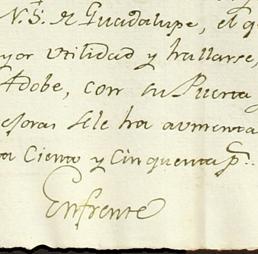 N. S. de Guadalupe, el q
yor utilidad y hallarse,
Adobe, con su Puerta
ejoras sele ha aumenta
a Ciento y Cinquenta p.
Enfrente